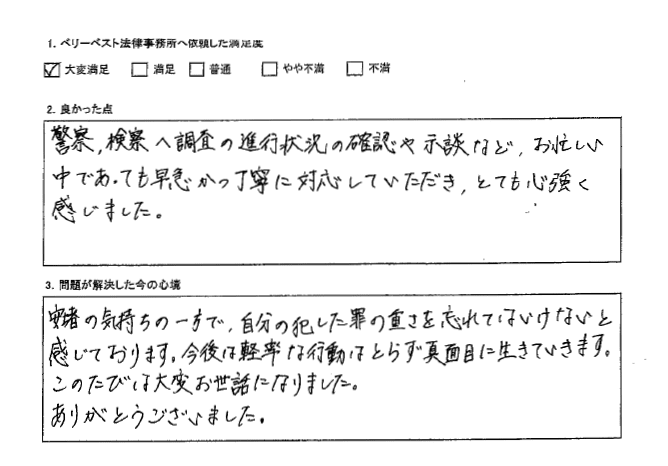 1. ベリーベスト法律事務所へ依頼した満足度
☑ 大変満足 □ 満足 □ 普通 □ やや不満 □ 不満
2. 良かった点
警察,検察へ調査の進行状況の確認や示談など,お忙しい
中であっても早急かつ丁寧に対応していただき,とても心強く
感じました。
3. 問題が解決した今の心境
安堵の気持ちの一方で,自分の犯した罪の重さを忘れてはいけないと
感じております。今後は軽率な行動はとらず真面目に生きていきます。
このたびは大変お世話になりました。
ありがとうございました。